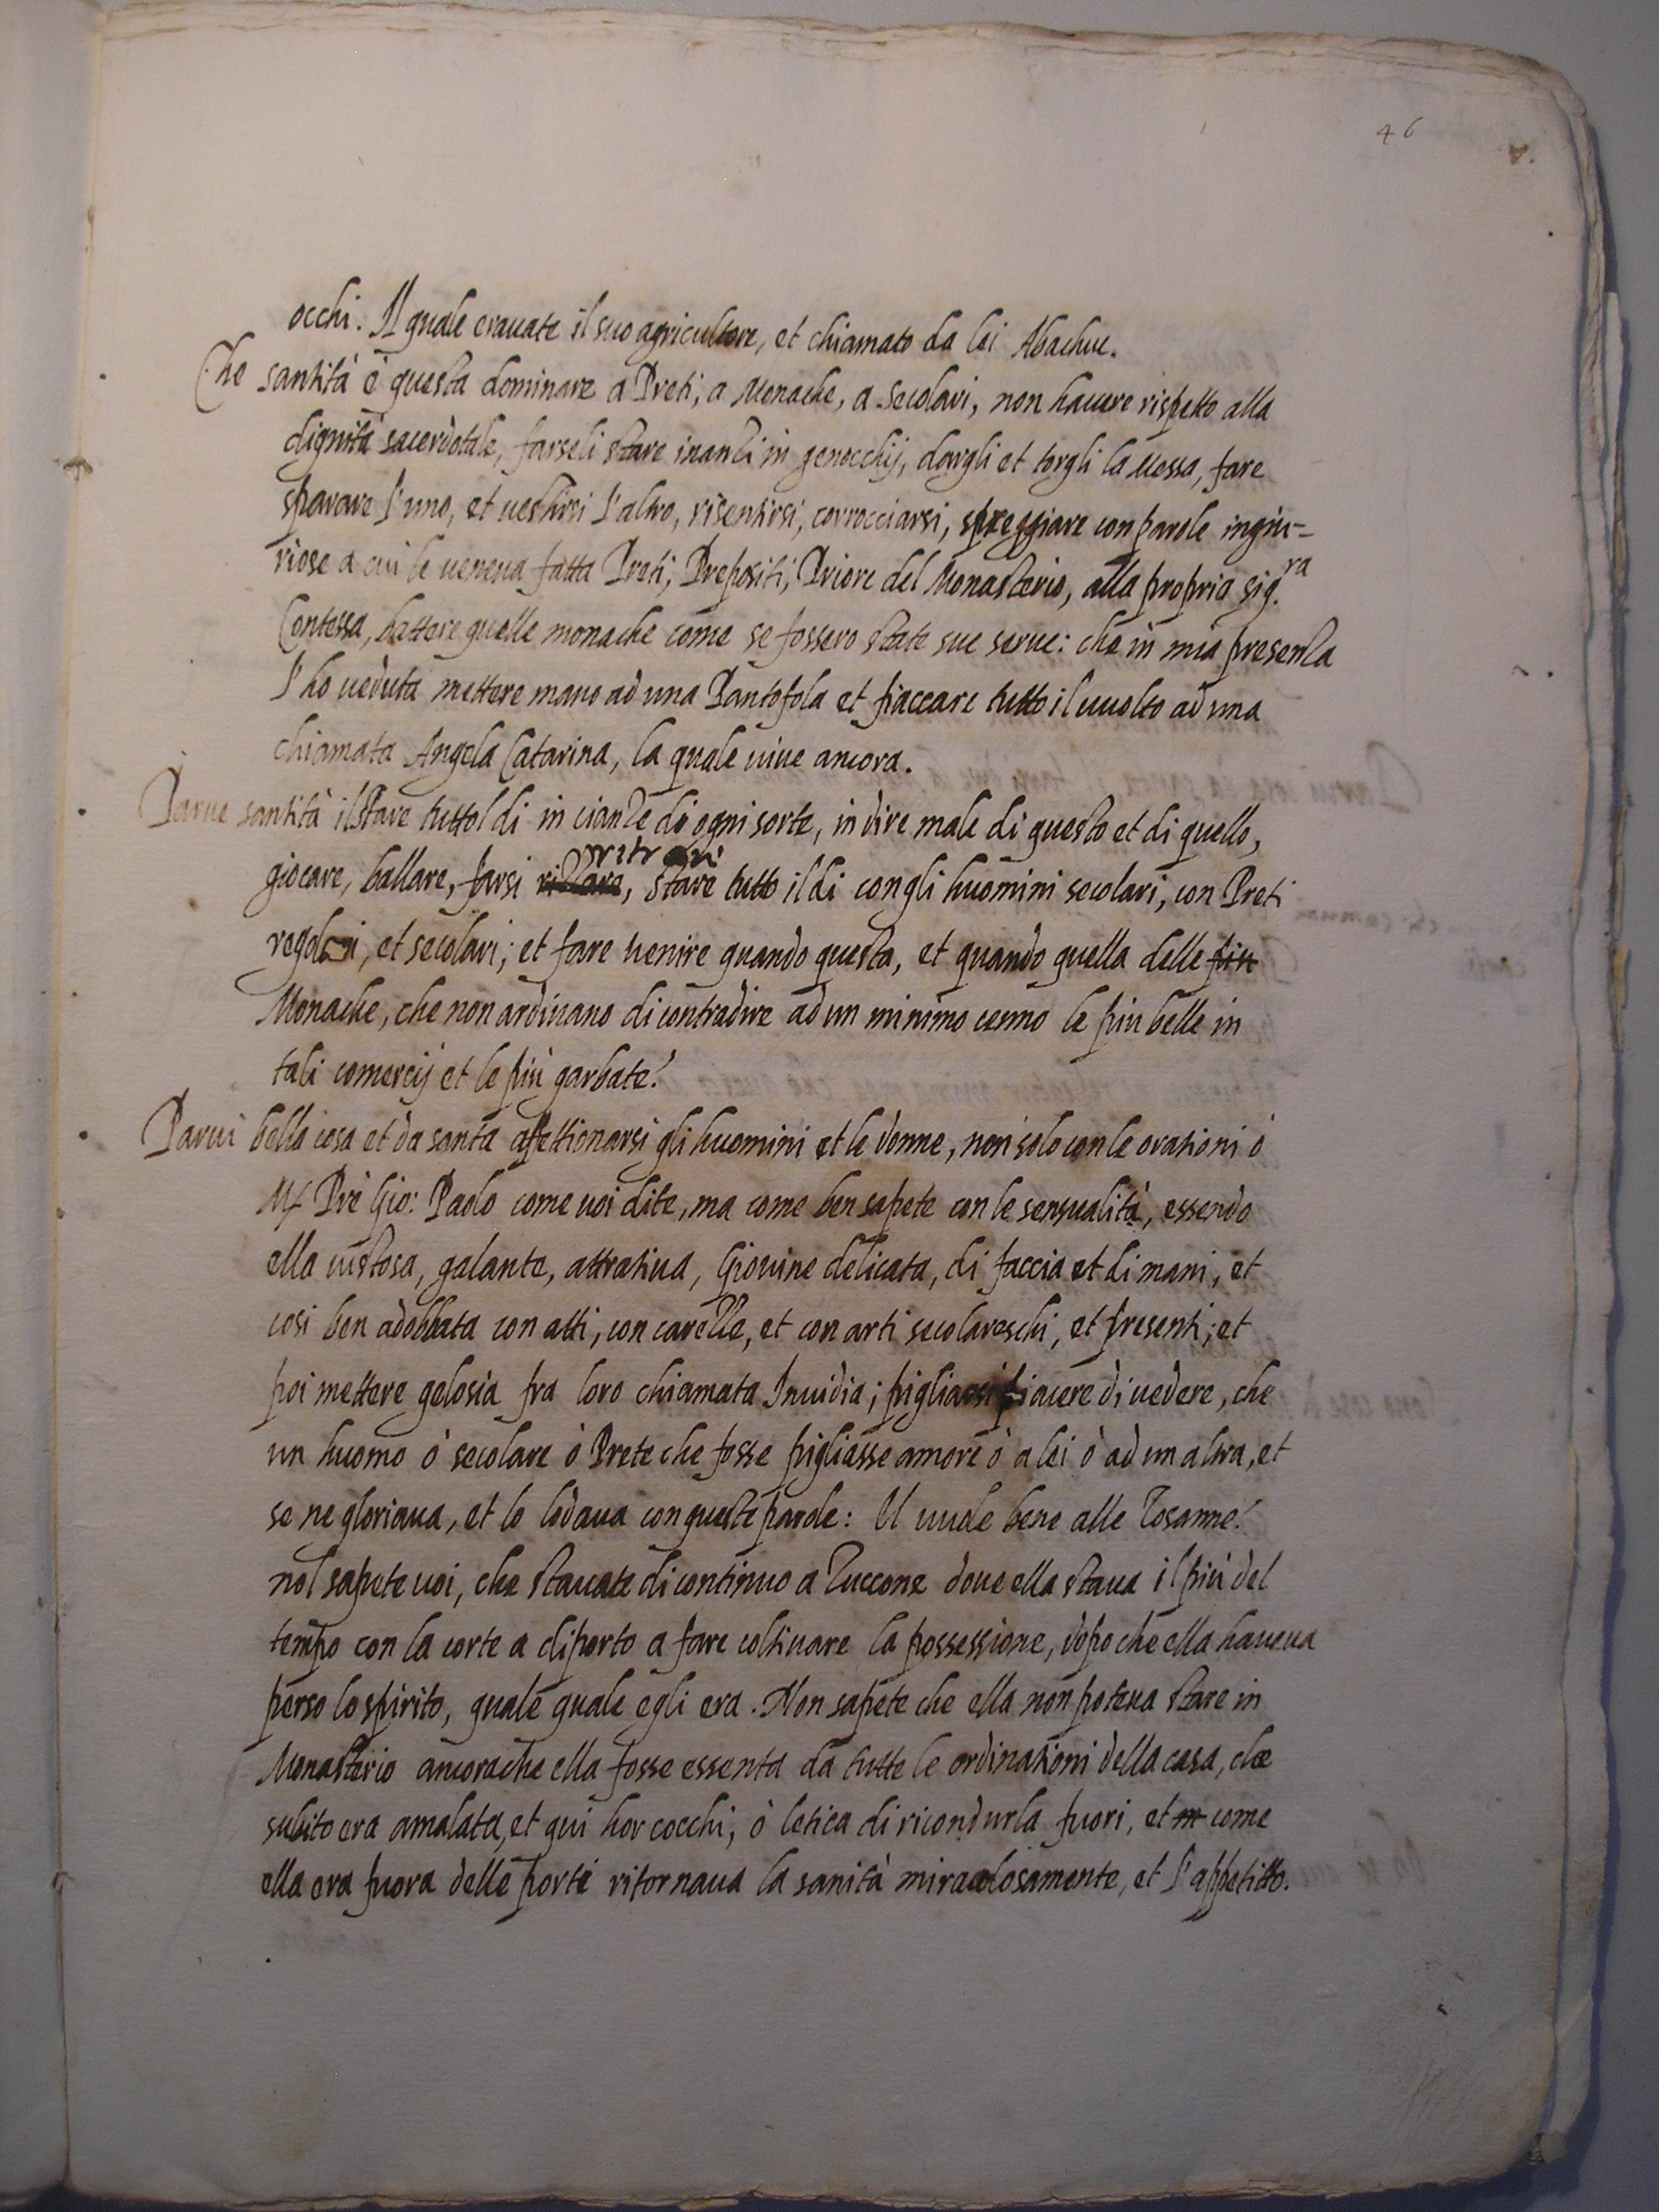 46
occhi. Il quale erauate il suo agricultore, et chiamato da lei Abachuc.
Che santità è questa dominare a Preti, a Monache, a secolari, non hauere rispetto alla
dignità sacerdotale, farseli stare inanzi in genocchij, dargli et torgli la Messa, fare
sparare l'uno, et uestirsi l'altro, risentirsi, corrocciarsi, spreggiare con parole ingiu-
riose a cui le ueneua fatta Preti, Prepositi, Priore del Monasterio, alla propria sig.ra
Contessa, battere quelle monache come se fossero state sue serue: che in mia presenza
l'ho ueduta mettere mano ad una Pantofola et fiaccare tutto il uuolto ad una
chiamata Angela Catarina, la quale uiue ancora.
Parue santità il stare tutto'l di in cianze di ogni sorte, in dire male di questo et di quello,
giocare, ballare, farsi ritrari, stare tutto il di con gli huomini secolari, con Preti
regolari, et secolari; et fare uenire quando questa, et quando quella delle piu
Monache, che non ardiuano di contradire ad un minimo cenno le piu belle in
tali comercij et le più garbate?
Parui bella cosa et da santa affettionarsi gli huomini et le donne, non solo con le orationi ò
Mʃ Prè Gio: Paolo come uoi dite, ma come ben sapete con le sensualità, essendo
ella uistosa, galante, attratiua, Giouine delicata, di faccia et di mani, et
cosi ben adobbata con atti, con carezze, et con arti secolareschi, et presenti; et
poi mettere gelosia fra loro chiamata Inuidia; pigliarsi piacere di uedere, che
un huomo ò secolare ò Prete che fosse pigliasse amore ò a lei ò ad un altra, et
se ne gloriaua, et lo lodaua con queste parole: Il uuole bene alle Tosanne?
nol sapete uoi, che stauate di continuo a Zuccone doue ella staua il più del
tempo con la corte a diporto a fare coltiuare la possessione, dopo che ella haueua
perso lo spirito, quale quale egli era. Non sapete che ella non poteua stare in
Monasterio ancorache ella fosse essenta da tutte le ordinationi della casa, che
subito era amalata, et qui hor cocchi, ò letica di ricondurla fuori, et m come
ella era fuora delle porte ritornaua la sanità miracolosamente, et l'appetitto.